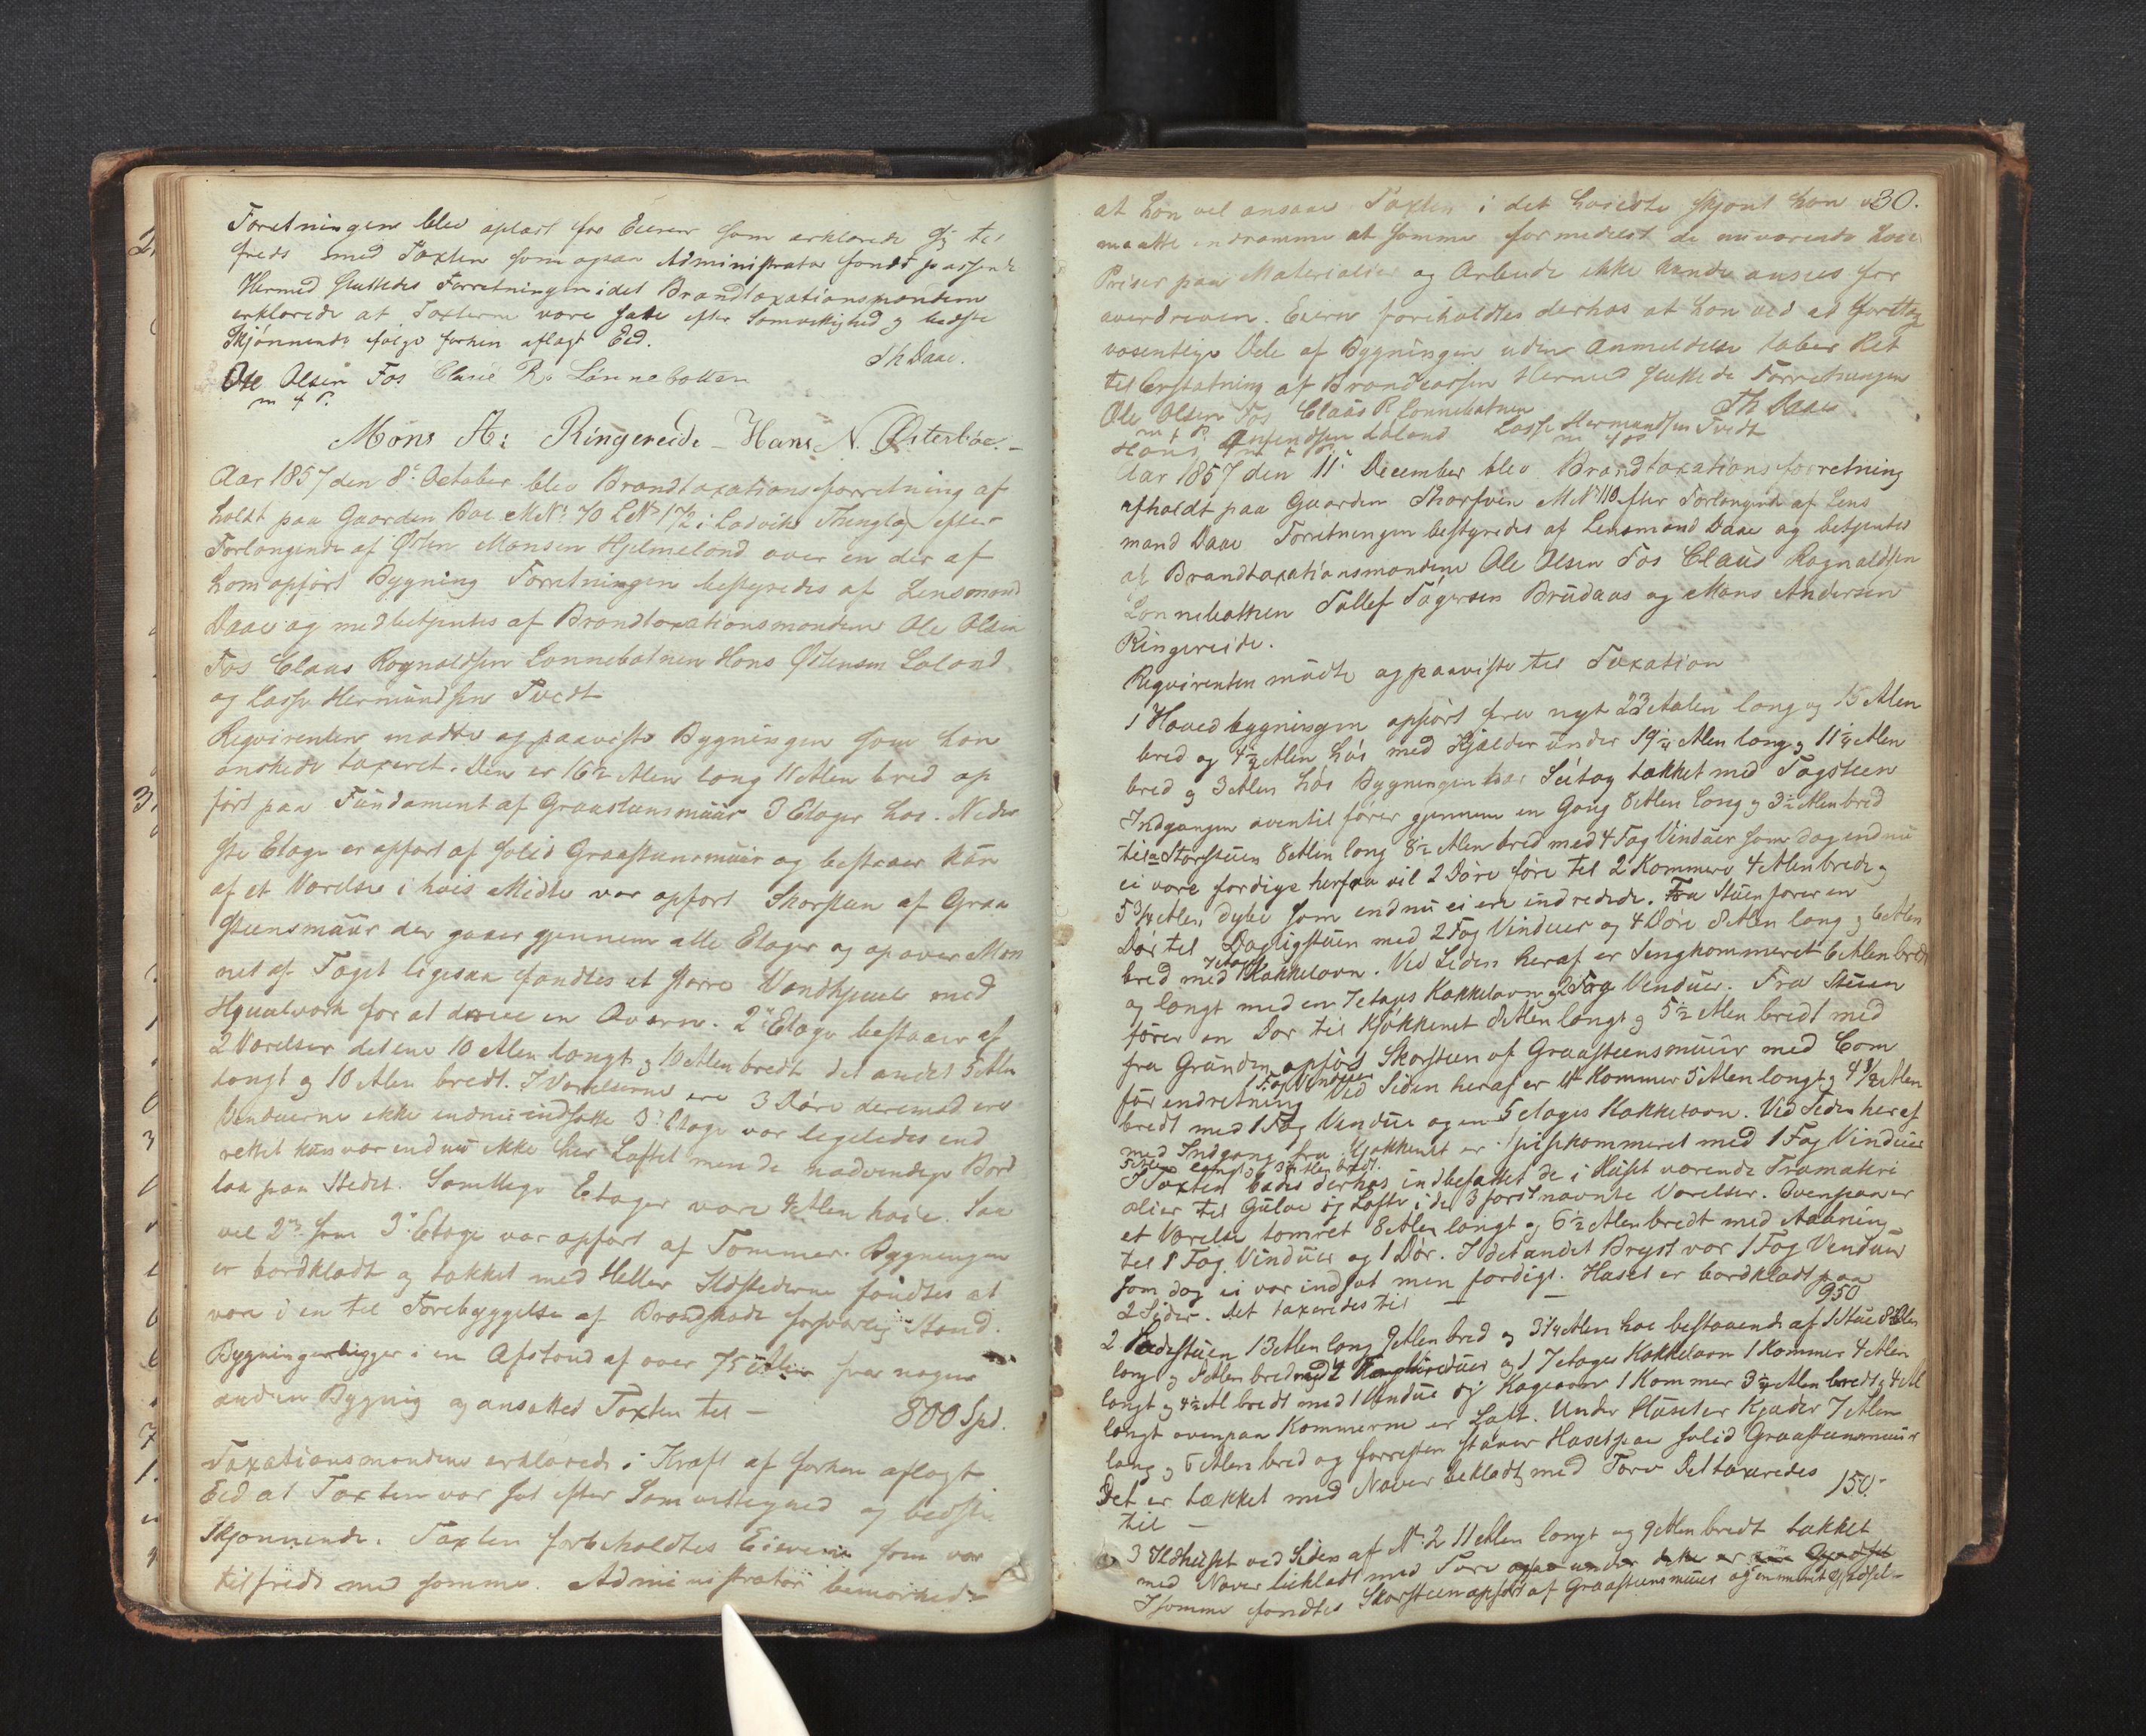 Forretningen blev oplæst for Eieren som erklærede sig til
freds med Taxten som ogsaa Administrator fandt passende
Hermed sluttedes Forretningen idet Brandtaxationsmændene
erklærede at Taxterne vare satte efter Samvittighed og bedste
Skjønnende ifølge forhen aflagt Eed.
Th Daae.
Ole Olsen Fos Claus R. Lønnebotten
m f P.
Mons A: Ringereide - Hans N. Østerbøe. -
Aar 1857 den 8de October blev Brandtaxationsforretning af
holdt paa Gaarden Bøe M No 70 L No 172 i Ladvik Thinglag efter
Forlangende af Østen Monsen Hjelmeland over en der af
ham opført Bygning Forretningen bestyredes af Lensmand
Daae og medbetjentes af Brandtaxationsmændene Ole Olsen
Fos Claus Rognaldsen Lønnebotnen Hans Østensen Laland
og Lasse Hermundsen Tvedt
Reqvirenten mødte og paaviste Bygningen som han
ønskede taxeret. Den er 16½ Alen lang 11 Alen bred op
ført paa Fundament af Graasteensmuur 3 Etager høi. Neder
ste Etage er opført af solid Graasteensmuur og bestaaer kun
af et Værelse i hvis Midte var opført Skorsteen af Graa
steensmuur der gaaer gjennem alle Etager og op over Møn
net af Taget ligesaa fandtes et større Vandhjuul med
Hjuulværk for at drive en Qværn. 2den Etage bestaaer af
2 Værelser det ene 10 Alen langt og 10 Alen bredt det andet 5 Alen
langt og 10 Alen bredt. I Værelserne ere 3 Døre derimod ere
Vinduerne ikke endnu indsatte 3de Etage var ligeledes ind
rettet kun var endnu ikke her Loftet men de nødvendige Bord
laa paa Stedet. Samtlige Etager vare 4 Alen høie. Saa
vel 2den som 3die Etage var opført af Tømmer. Bygningen
er bordklædt og tækket med Heller Ildstederne fandtes at
være i en til Forebyggelse af Brandskade forsvarlig Stand.
Bygningen ligger i en Afstand af over 75 Alen fra nogen
anden Bygnig og ansattes Taxten til - 800 Spd.
Taxationsmændene erklærede i Kraft af forhen aflagt
Eed at Taxten var sat efter Samvittighed og bedste
Skjønnende. Taxten forbeholdtes Eieren som var
tilfreds med samme. Administrator bemærkede
30.
at han vel ansaae Taxten i det høieste skjønt han
maatte indrømme at samme formedelst de nuværende høie
Priser paa Materialier og Arbeide ikke kunde ansees for
overdreven. Eieren foreholdtes derhos at han ved at foretage
væsentlige Dele af Bygningen uden Anmeldelse taber Ret
til Erstatning af Brandcassen Hermed sluttede Forretningen
Th Daae
Ole Olsen Fos Claus R Lønnebotnen Lasse Hermundsen Tvedt
m f P. m f P
Hans Østensen Laland
Aar 1857 den 11te December blev Brandtaxationsforretning
afholdt paa Gaarden Thorsvin M No 110 efter Forlangende af Lens
mand Daae Forretningen bestyredes af Lensmand Daae og betjentes
af Brandtaxationsmændene Ole Olsen Fos Claus Rognaldsen
Lønnebotten Tollef Tøgersen Brudaas og Mons Andersen
Ringereide.
Reqvirenten mødte og paaviste til Taxation
1 Hovedbygningen opført fra nyt 23 Alen lang og 15 Alen
bred og 4½ Alen høi med Kjælder under 19¼ Alen lang og 11¼ Alen
bred og 3 Alen høi Bygningen har Sutag tækket med Tagsteen
Indgangen oventil fører gjennem en Gang 8 Alen lang og 3½ Alen bred
til a Storstuen 8 Alen lang 8½ Alen bred med 4 Fag Vinduer som dog endnu
ei vare færdige herfra vil 2 Døre føre til 2 Kammere 4 Alen brede og
5¾ Alen dybe som endnu ei ere indredede. Fra Stuen fører en
Dør til Dagligstuen med 2 Fag Vinduer og 4 Døre 8 Alen lang og 6 Alen
bred med 7 etages Kakkelovn. Ved Siden heraf er Sengkammeret 6 Alen bredt
og langt med en 7 etages Kakkelovn og 2 Fag Vinduer. Fra Stuen
fører en Dør til Kjøkkenet 8 Alen langt og 5½ Alen bredt med
fra Grunden opført Skorsteen af Graasteensmuur med Com
før endretning 1 Fag Vinduer Ved Siden heraf er et Kammer 5 Alen langt og 4⅜ Alen
bredt med 1 Fag Vindue og en 5 etages Kakkelovn. Ved Siden heraf
med Indgang fra Kjøkkenet er Spisekammeret med 1 Fag Vinduer
5 Alen langt og Alen bredt.
I Taxten bades derhos indbefattet de i Huset værende Træmateri
alier til Gulve og Lofte i de 3 først nævnte Værelser. Ovenpaa er
et Værelse tømret 8 Alen langt og 6½ Alen bredt med Aabning
til 1 Fag Vinduer og 1 Dør. I det andet Bryst var 1 Fag Vinduer
som dog ei var indsat men færdigt. Huset er bordklædt paa
2 Sider. Det taxeredes til - 950
2 Ladestuen 13 Alen lang 9 Alen bred og 3¼ Alen høi bestaaende af 1 Stue 8 Alen
lang og 8 Alen bred med 2 Fag Vinduer og 1 7 etages Kakkelovn 1 Kammer 4 Alen
langt og 4½ Al bredt med 1 Vindue og Kageovn 1 Kammer 3¼ Alen bredt og 4 Al
langt ovenpaa Kammerne er Loft. Under Huset er Kjælder 7 Alen
lang og 5 Alen bred og forresten staaer Huset paa solid Graasteensmuur
Det er tækket med Næver beklædt med Torv Det taxeredes
til - 150.
3 Ildhuset ved Siden af No 2 11 Alen langt og 9 Alen bredt tækket
med Næver beklædt med Torv
I samme fandtes Skorsteen opført af Graasteensmuur og en muret